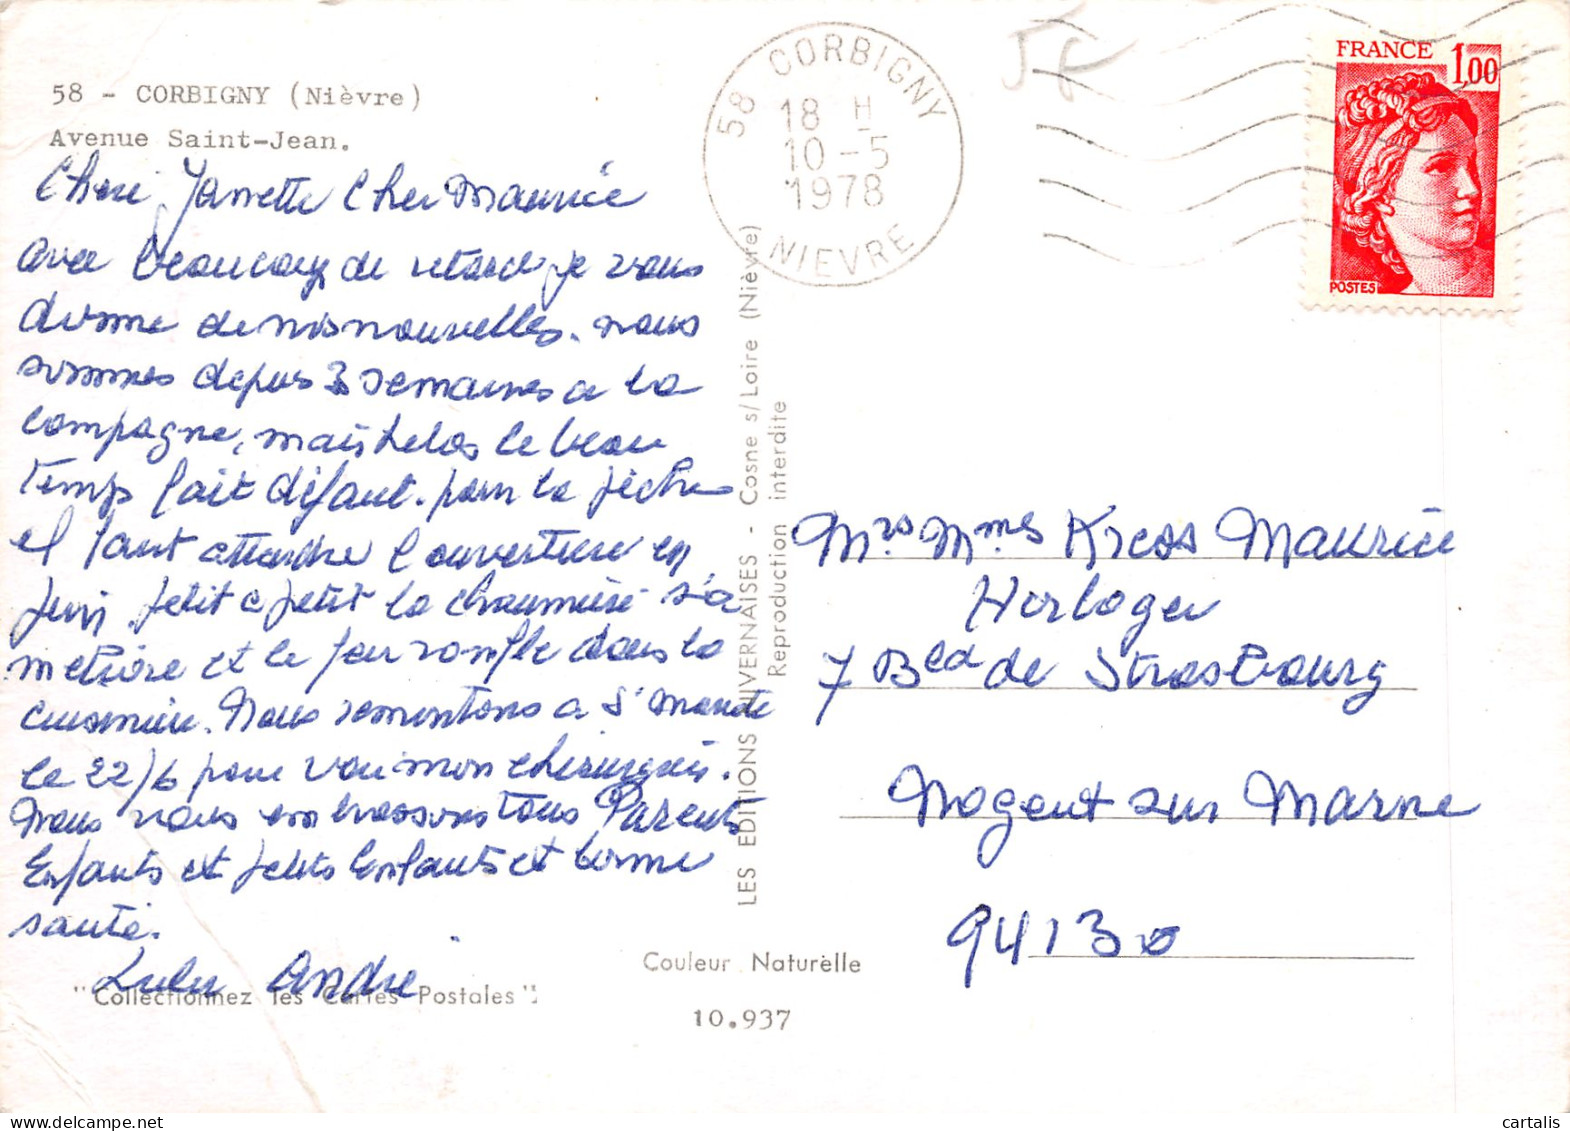 58 - CORBIGNY (Nièvre)
Avenue Saint-Jean.
Chere Jannette Cher Maurice
avec beaucoup de retard je vous
donne de nos nouvelles. nous
sommes depuis 3 semaines a la
compagne, mais helas le beau
temps fait défaut. pour la pêche
il faut attendre l'ouverture en
juin petit a petit la chaumière s'a
et le feu ronfle dans la
cuisinière. Nous remontons a St Mandé
le 22/6 pour voir mon chirurgien.
Nous vous embrassons tous Parents
Enfants et petits Enfants et bonne
santé.
Lulu André
"Collectionnez les Cartes Postales":
LES EDITIONS NIVERNAISES - Cosne s/Loire (Nièvre)
Reproduction interdite
Couleur Naturelle
10.937
58 CORBIGNY
18 H
10-5
1978
NIEVRE
58
FRANCE 1,00
POSTES
Mrs Mmes Kress Maurice
Horloger
7 Bld de Strasbourg
Nogent sur Marne
94130
cartalis